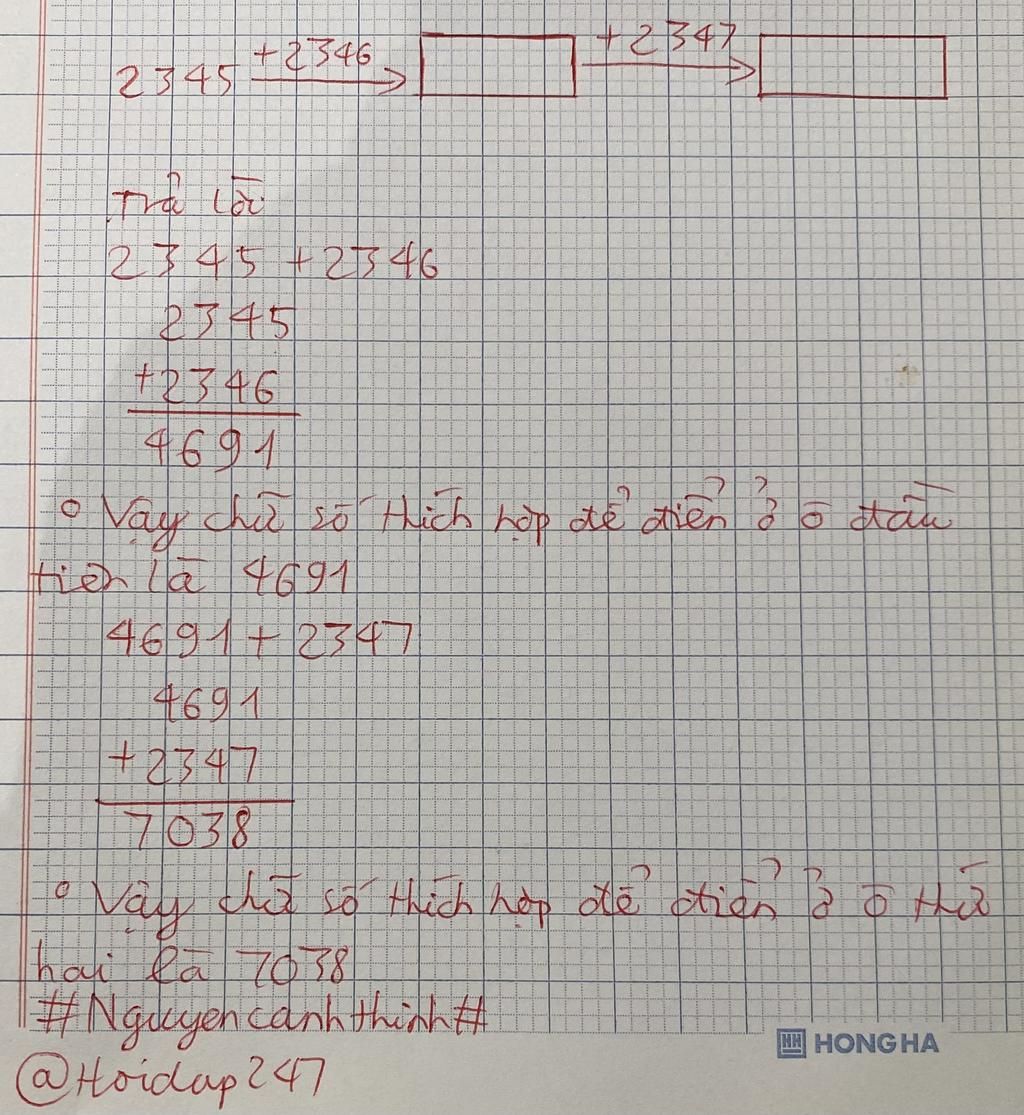 2345 +2346 +2347
Trả lời
2345 + 2346
2345
+2346
4691
Vậy chữ số thích hợp để điền ở ô đầu
tiên là 4691
4691 + 2347
4691
+2347
7038
Vậy chữ số thích hợp để điền ở ô thứ
hai là 7038
#Nguyencanhthinh#
HH HONG HA
@Hoidap247